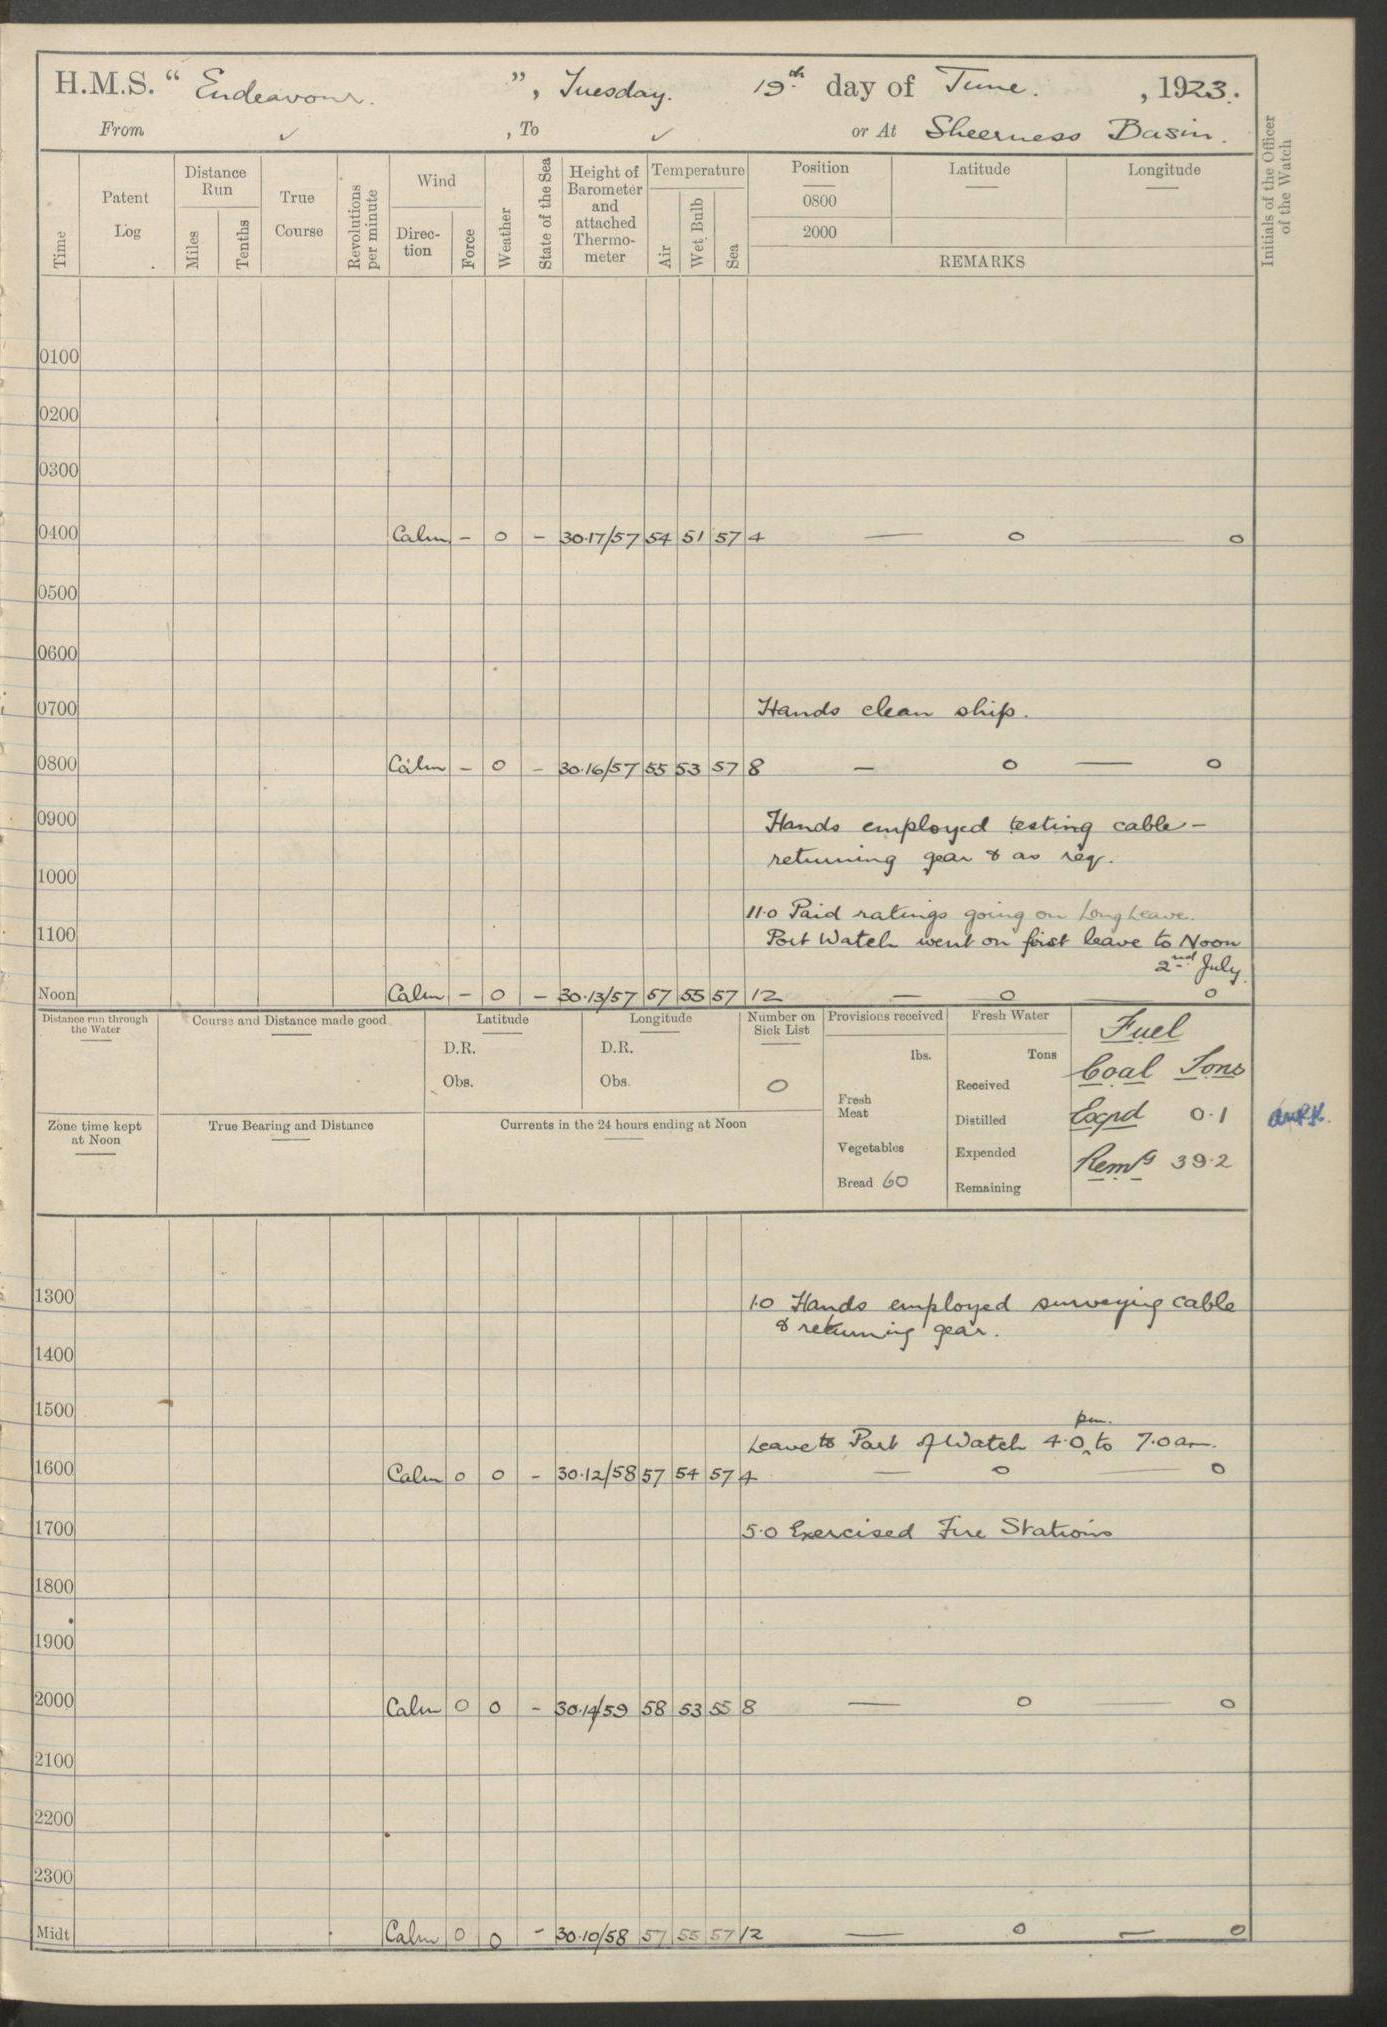 H.M.S. “ Endeavour. ”, Tuesday. 19th. day of June. , 1923.
From ✓ , To ✓ or At Sheerness Basin.
Time
Patent Log
Distance Run
Miles
Tenths
True Course
Revolutions per minute
Wind
Direc-tion
Force
Weather
State of the Sea
Height of Barometer and attached Thermo-meter
Temperature
Air
Wet Bulb
Sea
Position
0800
2000
Latitude
Longitude
REMARKS
Initials of the Officer of the Watch
0100
0200
0300
0400 Calm – 0 – 30.17/57 54 51 57 4 — 0 — 0
0500
0600
0700 Hands clean ship.
0800 Calm – 0 – 30.16/57 55 53 57 8 — 0 — 0
0900 Hands employed testing cable –
returning gear & as req.
1000
11.0 Paid ratings going on Long Leave.
1100 Port Watch went on first leave to Noon
2nd July.
Noon Calm – 0 – 30.13/57 57 55 57 12 — 0 — 0
Distance run through the Water
Course and Distance made good
Latitude
D.R.
Obs.
Longitude
D.R.
Obs.
Number on Sick List
0
Provisions received
lbs.
Fresh Meat
Vegetables
Bread 60
Fresh Water
Tons
Received
Distilled
Expended
Remaining
Fuel
Coal Tons
Expd 0.1
Remg 39.2
Zone time kept at Noon
True Bearing and Distance
Currents in the 24 hours ending at Noon
1300 1.0 Hands employed surveying cable
& returning gear.
1400
1500
pm.
Leave to Part of Watch 4.0 to 7.0 am.
1600 Calm 0 0 – 30.12/58 57 54 57 4 — 0 — 0
1700 5.0 Exercised Fire Stations
1800
1900
2000 Calm 0 0 – 30.14/59 58 53 55 8 — 0 — 0
2100
2200
2300
Midt Calm 0 0 – 30.10/58 57 55 57 12 — 0 — 0